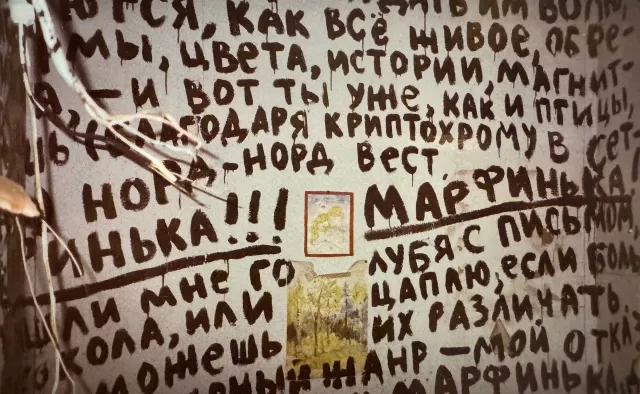 ЮТСЯ, КАК ВСЁ ИМ ВОЛЮ
МЫ, ЦВЕТА, ИСТОРИИ, МАГНИТ-
А, – И ВОТ ТЫ УЖЕ, КАК И ПТИЦЫ,
БЛАГОДАРЯ КРИПТОХРОМУ В СЕТ
НОРД-НОРД ВЕСТ
НОРД МАРФИНЬКА!
ИНЬКА!!!
ШЛИ МНЕ ГОЛУБЯ С ПИСЬМОМ,
КОЛА, ИЛИ ЦАПЛЮ, ЕСЛИ БОЛЬ
МОЖЕШЬ ИХ РАЗЛИЧАТЬ.
РНЫЙ ЖАНР – МОЙ ОТКА
МАРФИНЬКА